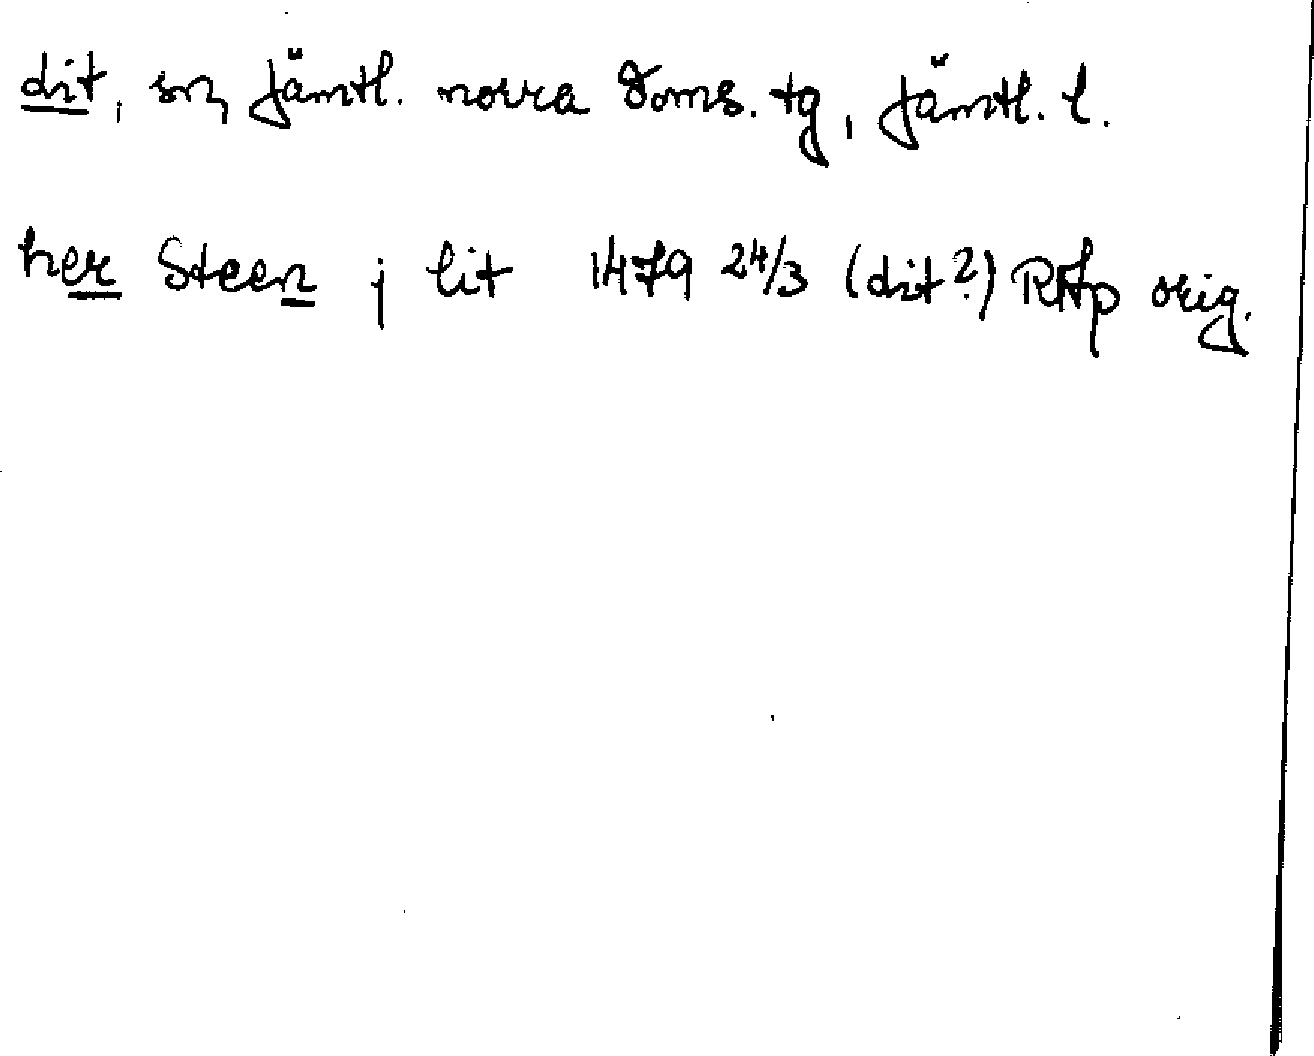 Lit, sn, Jämtl. norra doms. tg, Jämtl. l.
her Steen j lit 1479 24/3 (Lit?) RAp orig.